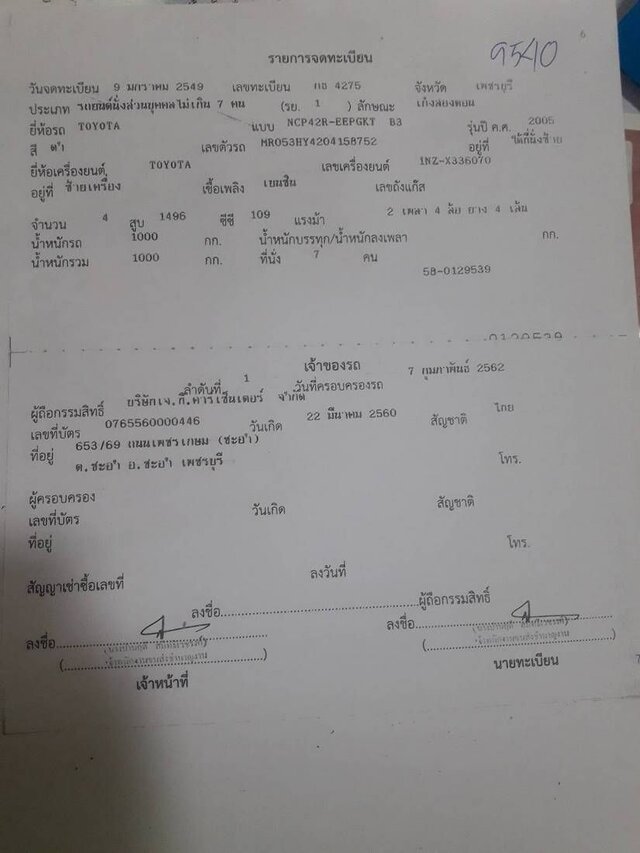 6
9540
รายการจดทะเบียน
วันจดทะเบียน 9 มกราคม 2549 เลขทะเบียน กธ 4275 จังหวัด เพชรบุรี
ประเภท รถยนต์นั่งส่วนบุคคลไม่เกิน 7 คน (รย. 1 ) ลักษณะ เก๋งสองตอน
ยี่ห้อรถ TOYOTA แบบ NCP42R-EEPGKT B3 รุ่นปี ค.ศ. 2005
สี ดำ เลขตัวรถ MR053HY4204158752 อยู่ที่ ใต้ที่นั่งซ้าย
ยี่ห้อเครื่องยนต์ TOYOTA เลขเครื่องยนต์ 1NZ-X336070
อยู่ที่ ซ้ายเครื่อง เชื้อเพลิง เบนซิน เลขถังแก๊ส
จำนวน 4 สูบ 1496 ซีซี 109 แรงม้า 2 เพลา 4 ล้อ ยาง 4 เส้น
น้ำหนักรถ 1000 กก. น้ำหนักบรรทุก/น้ำหนักลงเพลา กก.
น้ำหนักรวม 1000 กก. ที่นั่ง 7 คน
58-0129539
0129539
เจ้าของรถ
ลำดับที่ 1 วันที่ครอบครองรถ 7 กุมภาพันธ์ 2562
ผู้ถือกรรมสิทธิ์ บริษัทเจ.ที.คาร์เซ็นเตอร์ จำกัด
เลขที่บัตร 0765560000446 วันเกิด 22 มีนาคม 2560 สัญชาติ ไทย
ที่อยู่ 653/69 ถนนเพชรเกษม (ชะอำ)
ต.ชะอำ อ.ชะอำ เพชรบุรี โทร.
ผู้ครอบครอง
เลขที่บัตร วันเกิด สัญชาติ
ที่อยู่ โทร.
สัญญาเช่าซื้อเลขที่ ลงวันที่
ลงชื่อ ผู้ถือกรรมสิทธิ์
ลงชื่อ ลงชื่อ
เจ้าพนักงานขนส่งชำนาญงาน เจ้าพนักงานขนส่งชำนาญงาน
เจ้าหน้าที่ นายทะเบียน